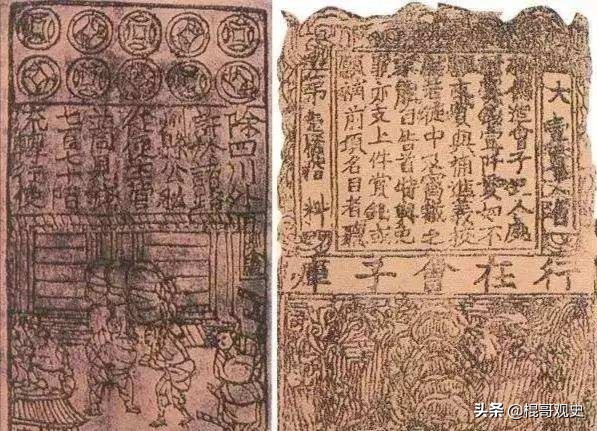 除四川外
許於諸路
州縣公私
從便主管
並同見錢
七百七十陌
流轉行使
大壹貫文省
敕偽造會子犯人處
斬賞錢壹阡貫如不
願支賞與補進義校
尉若徒中及窩藏之
家能自告首特與免
罪亦支上件賞錢或
願補前項名目者聽
第壹百拾料
行在會子庫
头条 @棍哥观史